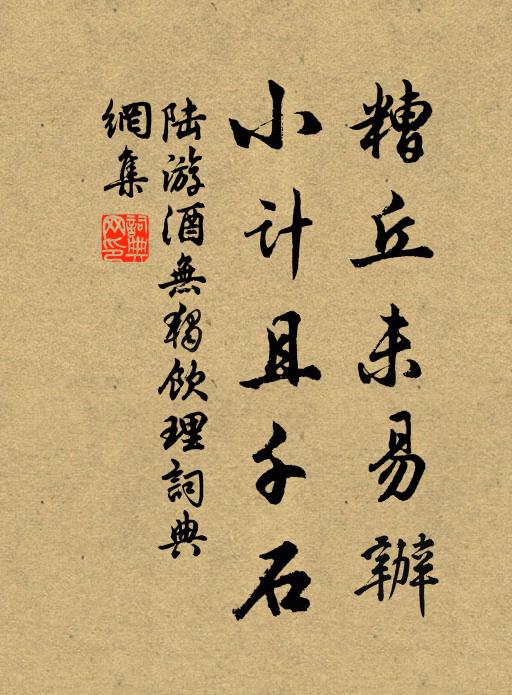 糟丘未易辦
小计且千石
陆游酒無獨飲理詞典
網集
詞典
网印